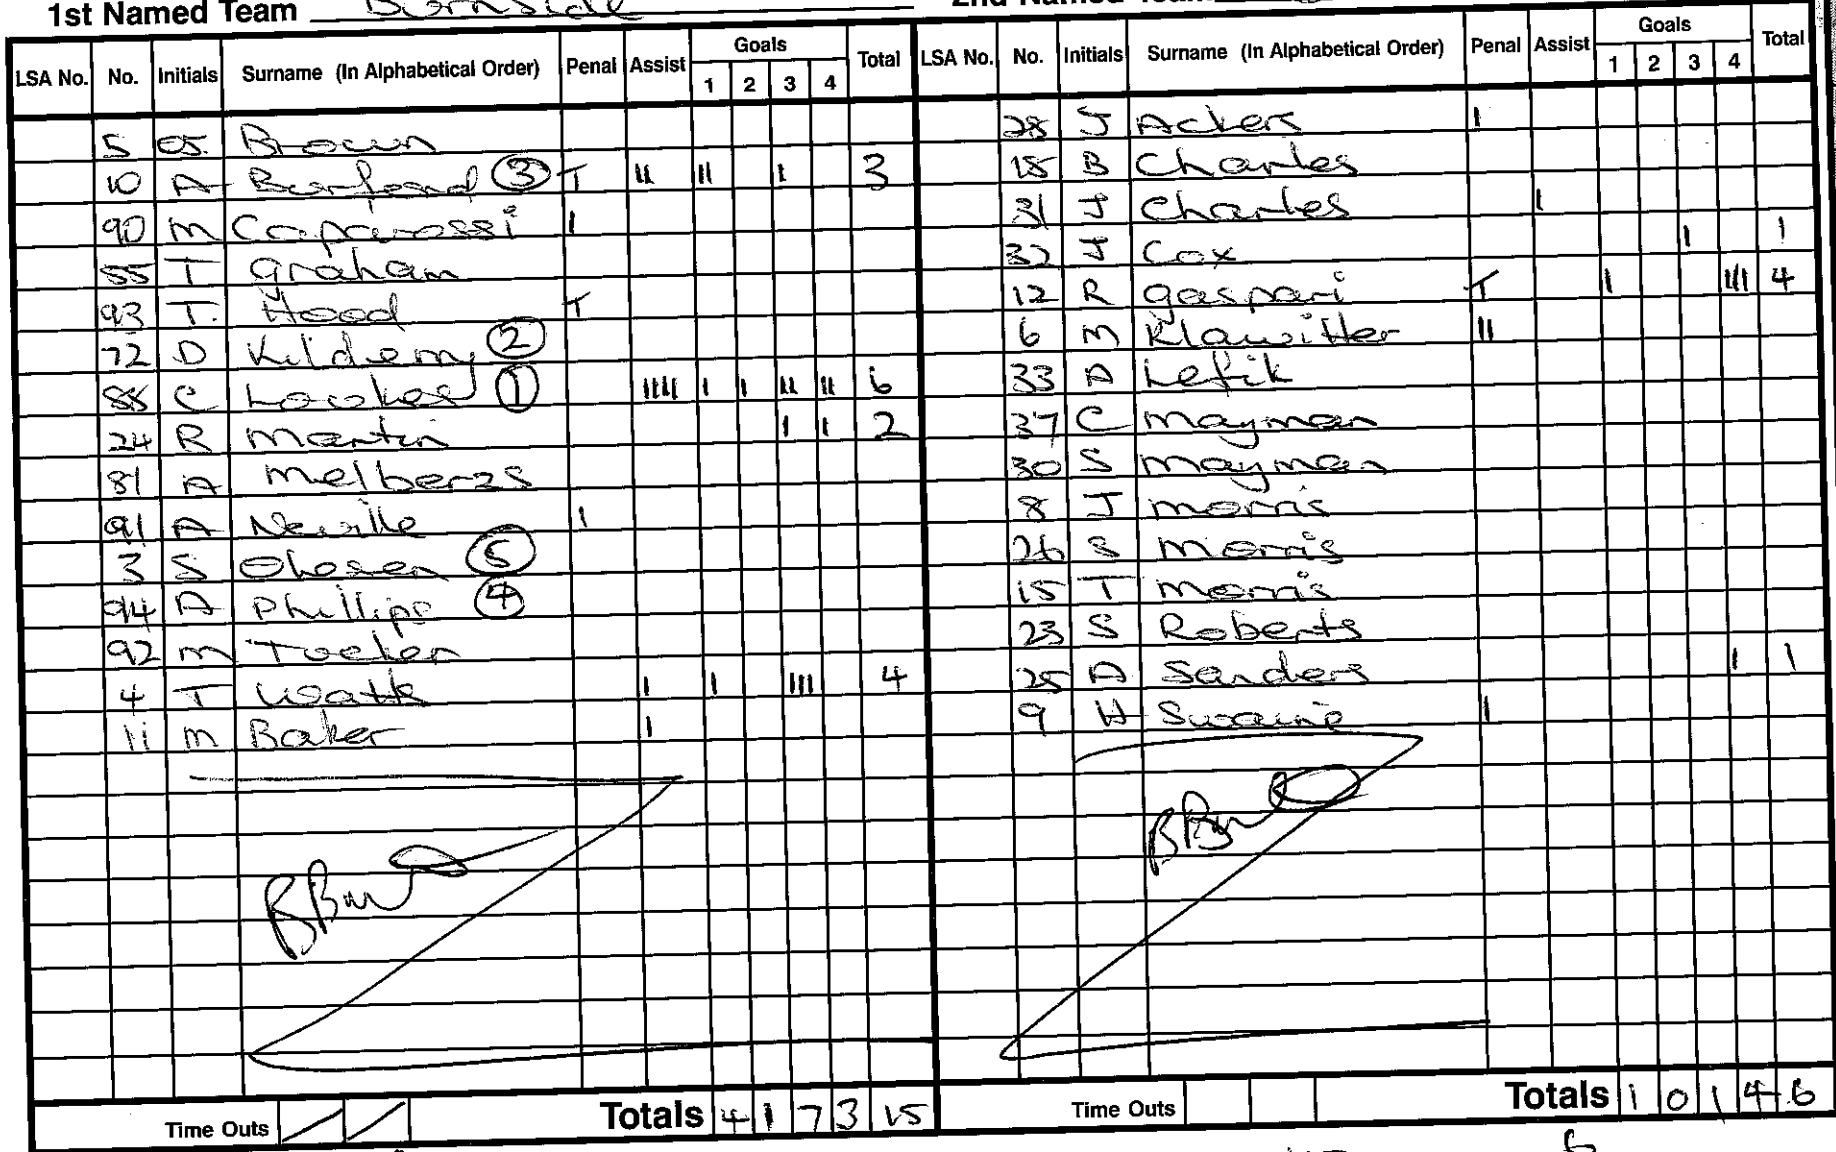 1st Named Team Burnside
2nd Named Team
LSA No. No. Initials Surname (In Alphabetical Order) Penal Assist Goals 1 2 3 4 Total
5 Brown
10 A Burford ③ T II II I 3
90 M Caparossi I
55 T Graham
93 T. Hood T
72 D ②
88 C ① IIIII I I II II 6
24 R Martin I I 2
81 A Melberzs
91 A Neville I
3 S Olesen ⑤
94 A Phillips ④
92 M
4 T Watts I I III 4
11 M Baker I
Time Outs / / Totals 4 1 7 3 15
LSA No. No. Initials Surname (In Alphabetical Order) Penal Assist Goals 1 2 3 4 Total
28 J Ackers I
18 B Charles
31 J Charles I
32 J Cox I 1
12 R Gaspari T I III 4
6 M Klawitter II
33 A Lefik
37 C Mayman
30 S Mayman
8 J Morris
26 S Morris
15 T Morris
23 S Roberts
25 A Sanders I 1
9 H I
Time Outs Totals 1 0 1 4 6